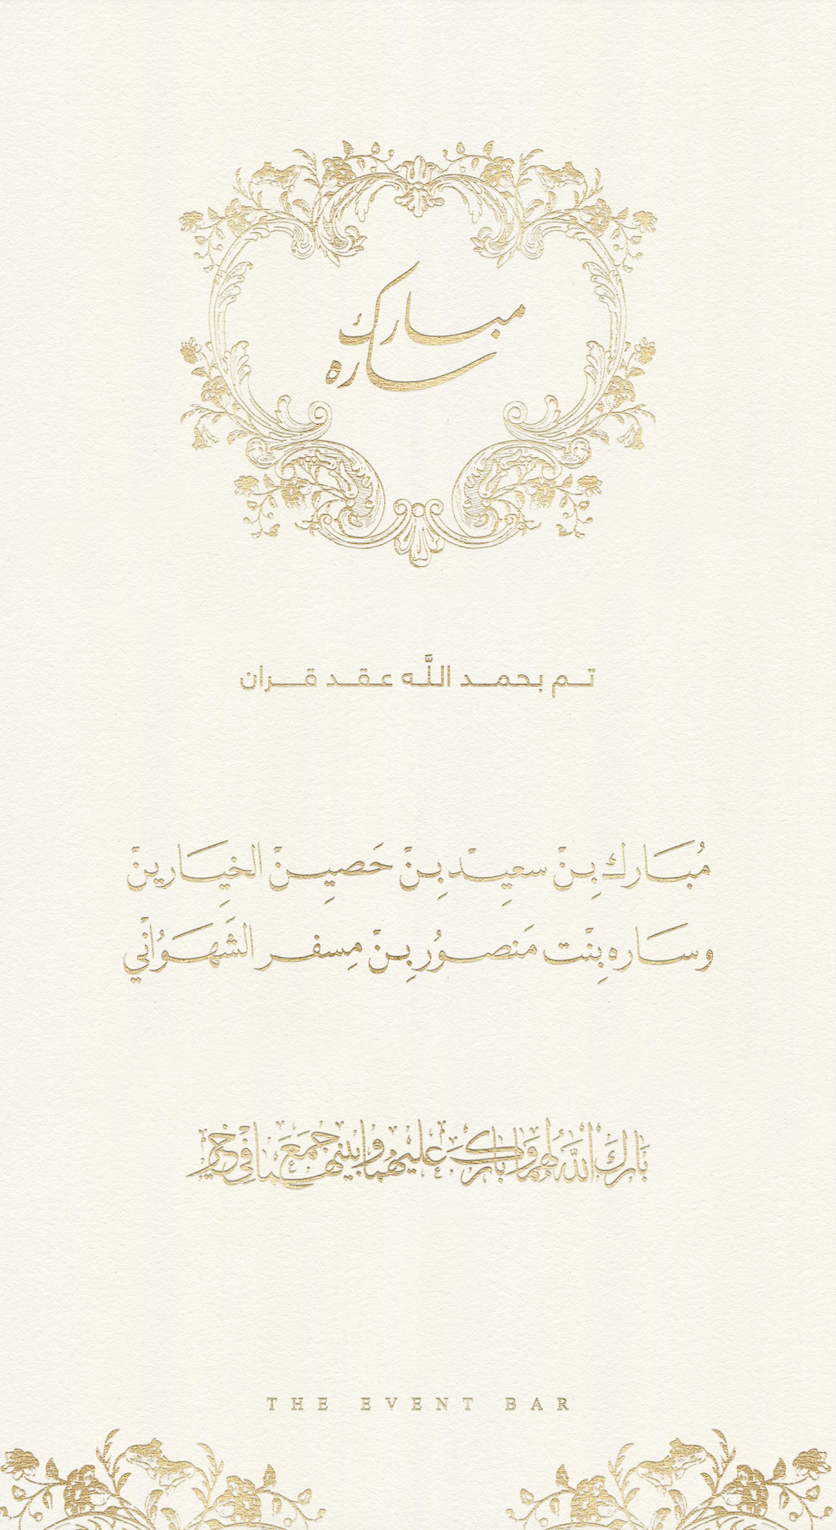 مبارك
ساره
تم بحمد اللَّه عقد قران
مُبَارك بِنْ سعِيد بِنْ حَصِينْ الخيَارِينْ
وسَاره بِنْت مَنصُور بِنْ مِسفر الشَهَوَانْي
بَارَكَ اللَّهُ لهُمَا وَبَارَكَ عَليهُمَا وَجَمَعَ بينهما في خَير
THE EVENT BAR